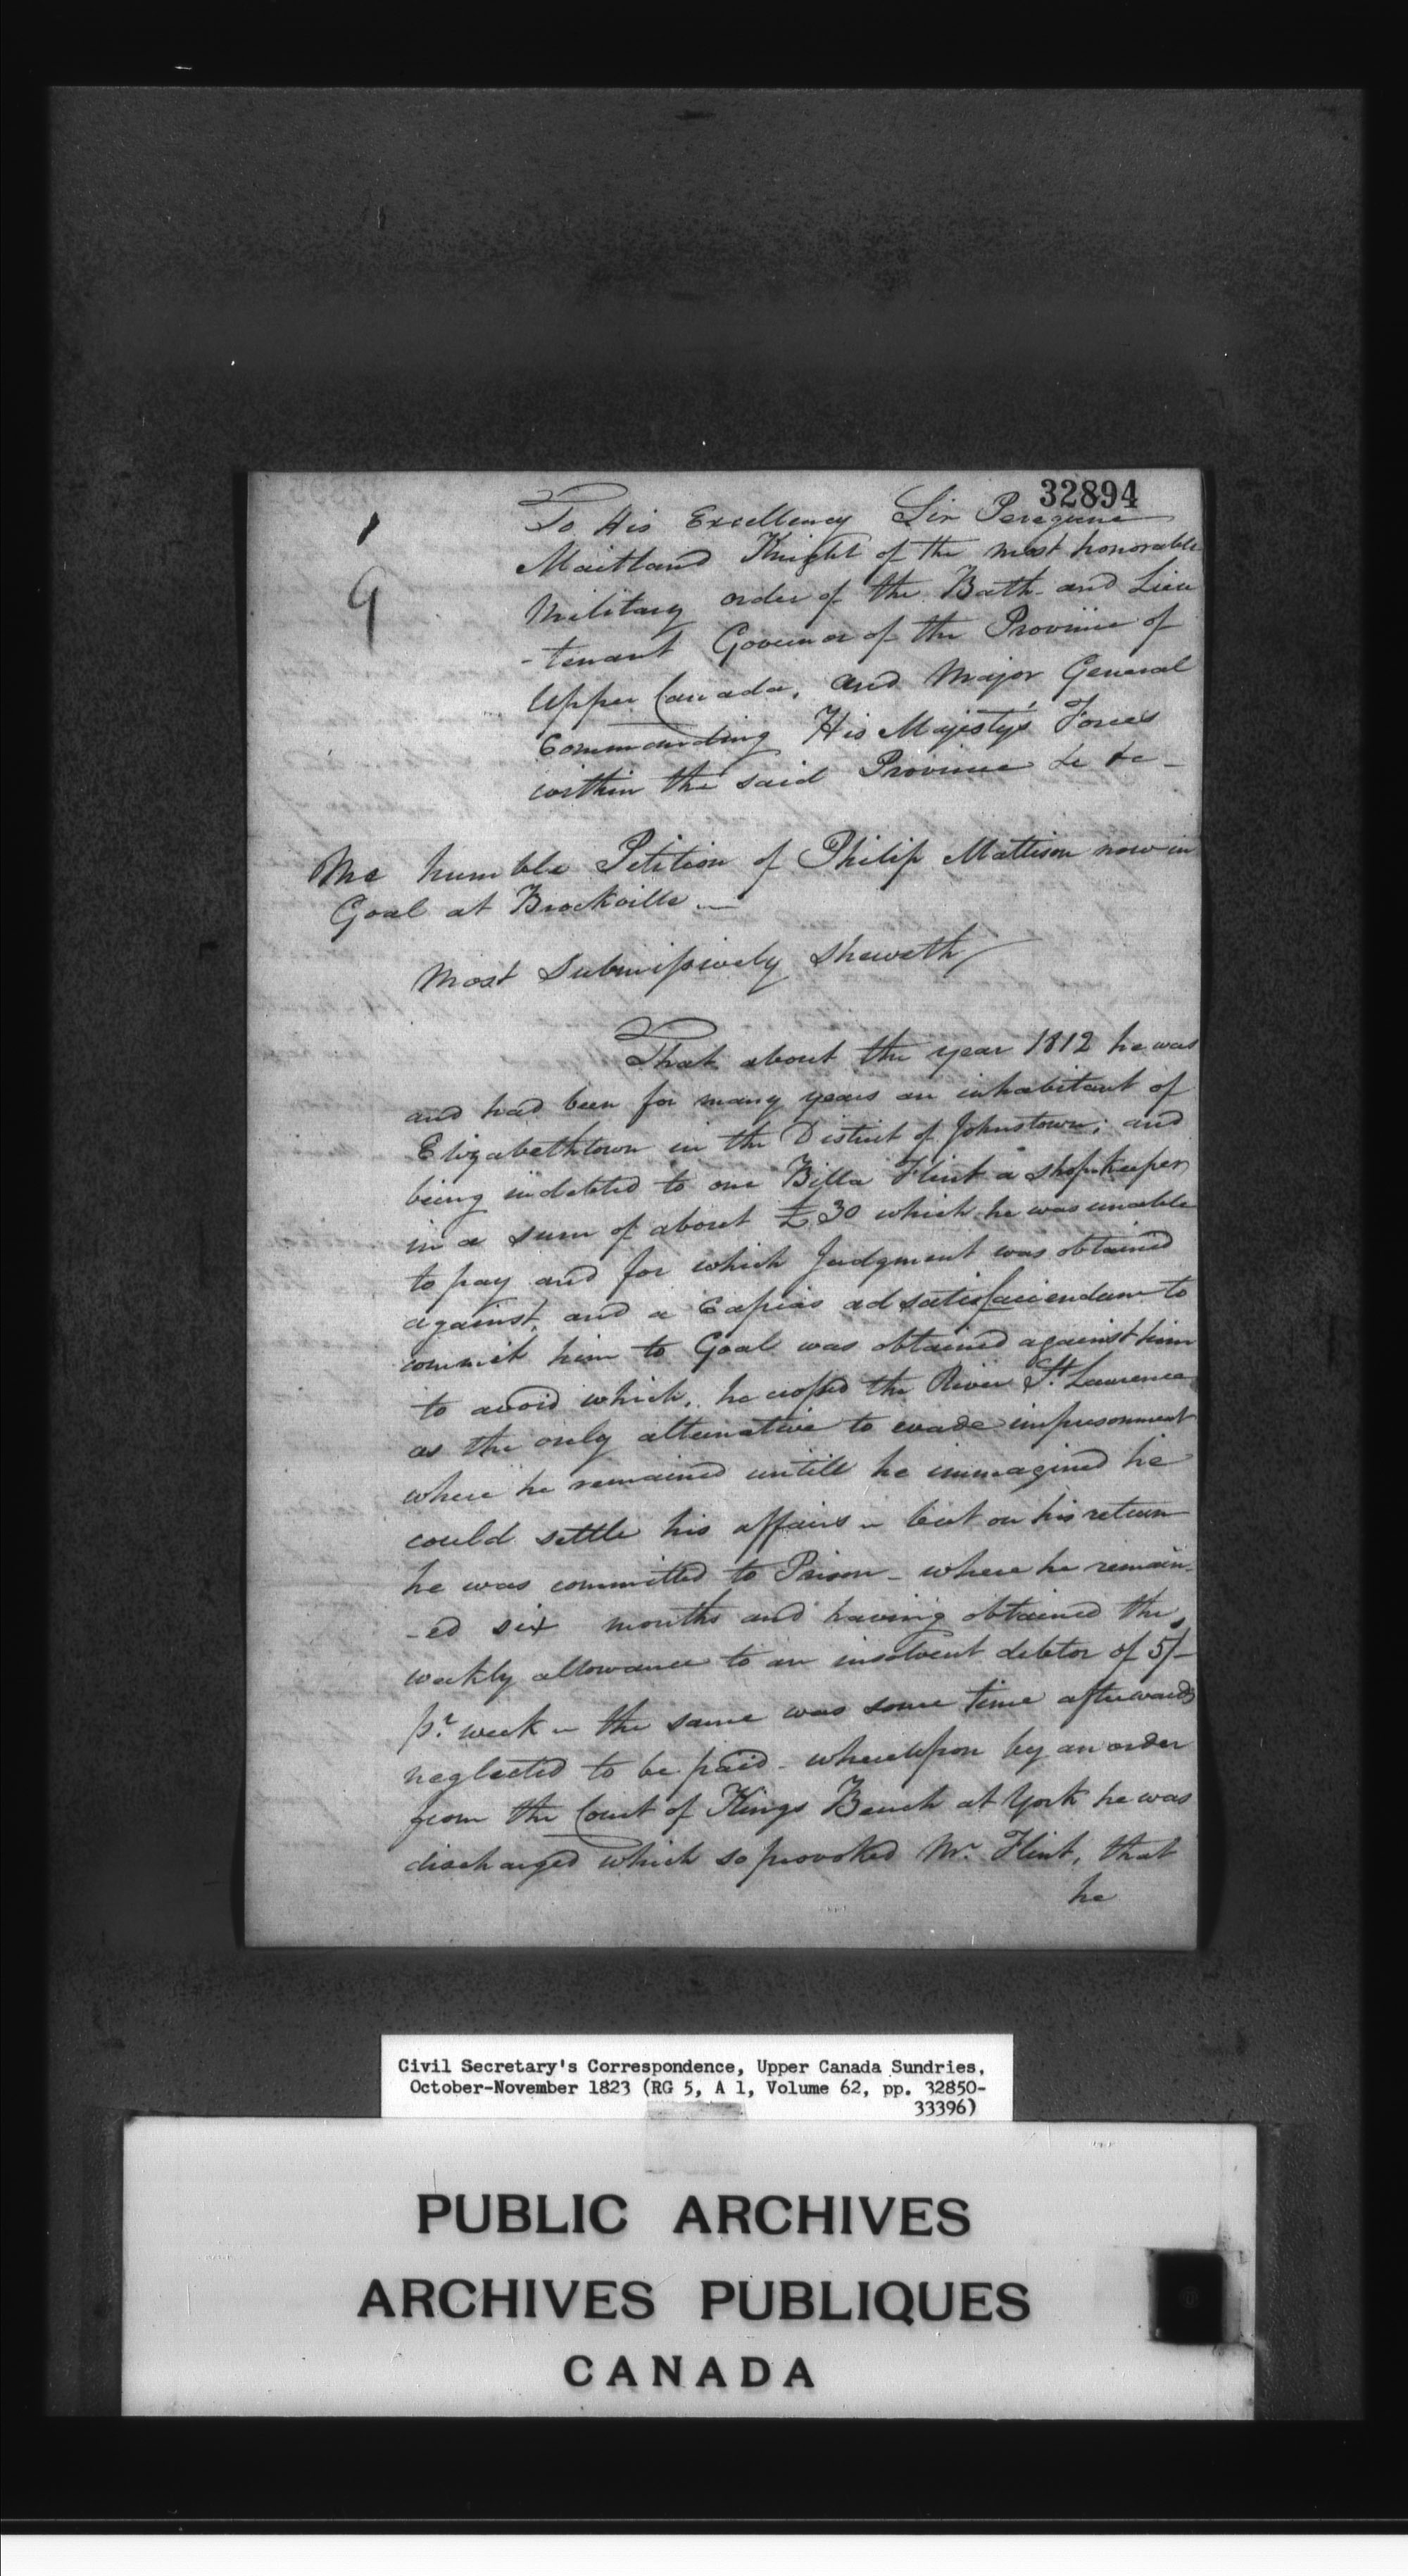 32894
To His Excellency Sir Peregrine
Maitland Knight of the most honorable
Military order of the Bath and Lieu
-tenant Governor of the Province of
Upper Canada, and Major General
Commanding His Majesty's Forces
within the said Province &c &c -
9
The humble Petition of Philip Mattison now in
Goal at Brockville -
Most Submissively Sheweth
That about the year 1812 he was
and had been for many years an inhabitant of
Elizabethtown in the District of Johnstown; and
being indebted to one Billa Flint a shopkeeper
in a sum of about £30 which he was unable
to pay and for which Judgment was obtained
against, and a Capias ad satisfaciendum to
commit him to Goal was obtained against him
to avoid which, he crossed the River St. Lawrence
as the only alternative to evade imprisonment
where he remained untill he immagined he
could settle his affairs - but on his return
he was committed to Prison - where he remain
-ed six months and having obtained the
weekly allowance to an insolvent debtor of 5/-
pr. week - the same was some time afterwards
neglected to be paid - whereupon by an order
from the Court of Kings Bench at York he was
discharged which so provoked Mr. Flint, that
he
Civil Secretary's Correspondence, Upper Canada Sundries,
October-November 1823 (RG 5, A 1, Volume 62, pp. 32850-
33396)
PUBLIC ARCHIVES
ARCHIVES PUBLIQUES
CANADA